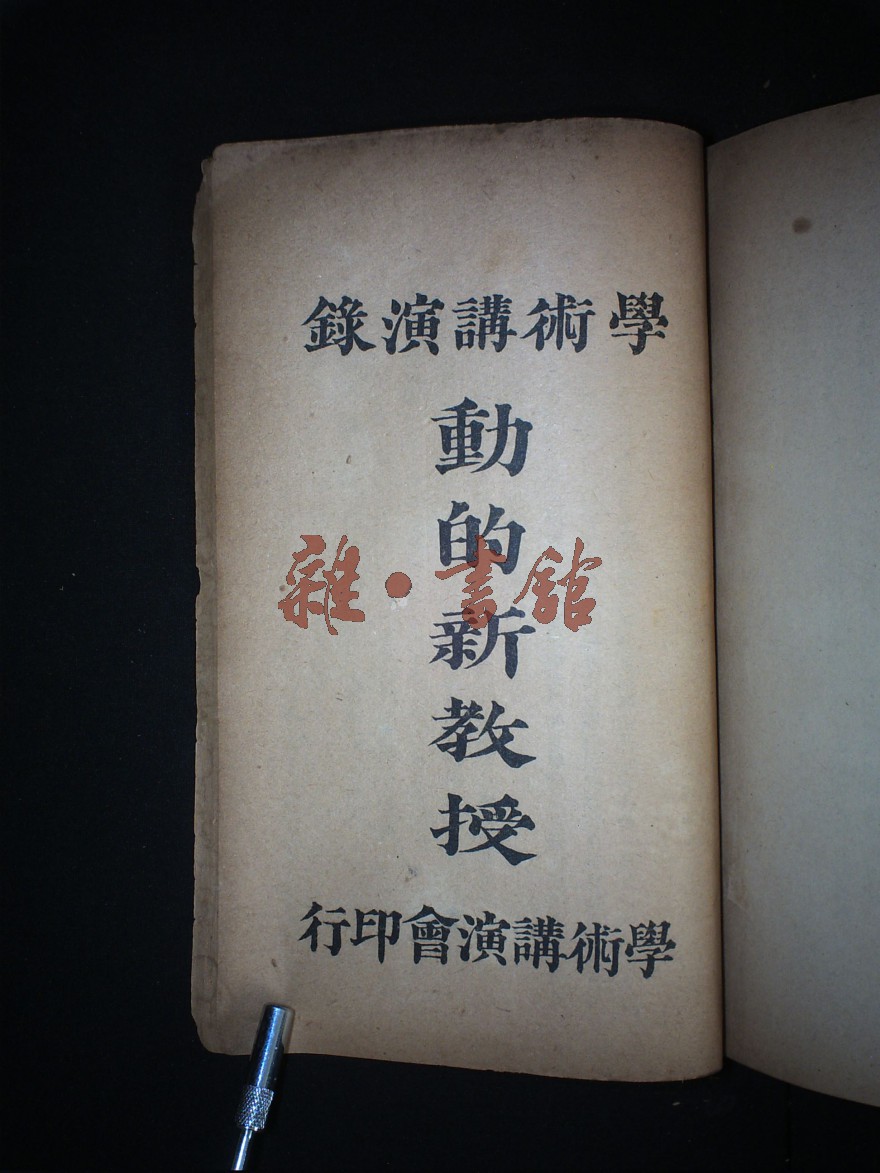 學術講演錄
動的新教授
雜·書館
學術講演會印行